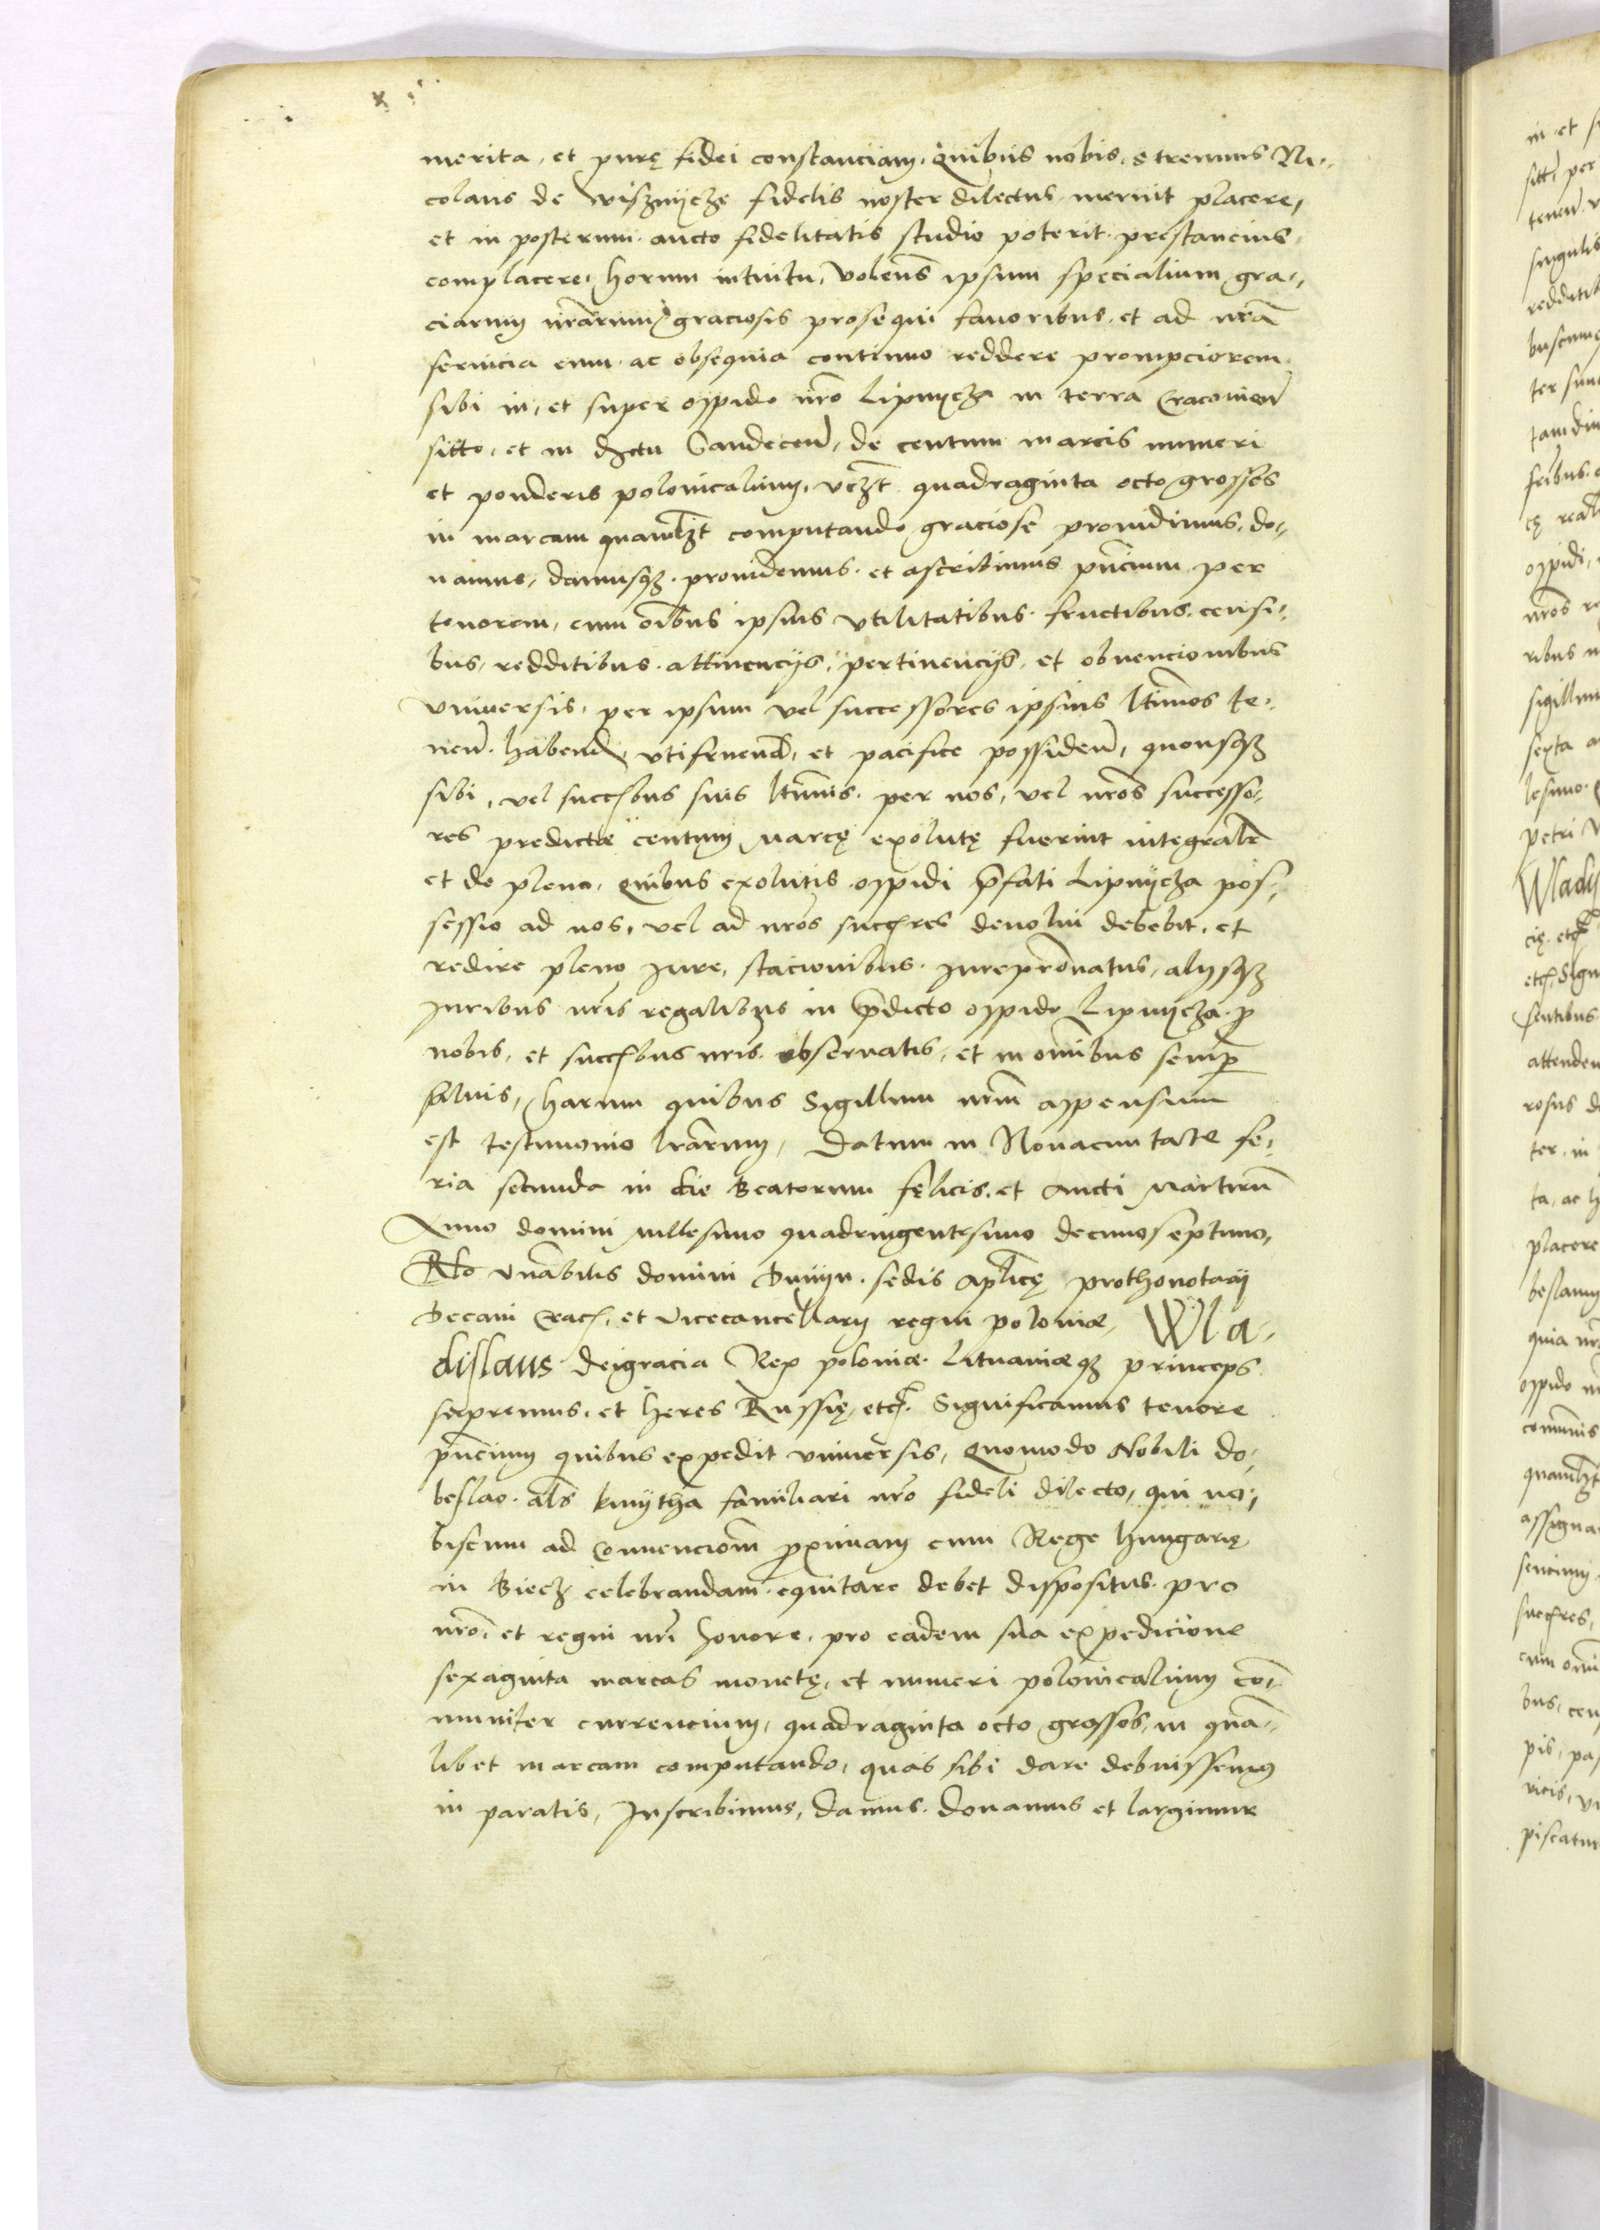 merita, et purę fidei constanciam, quibus nobis, strenuus Ni-
colaus de Wisznycze fidelis noster dilectus, meruit placere,
et in posterum aucto fidelitatis studio poterit prestancius
complacere, horum intuitu, volens ipsum specialium gra-
ciarum nrarum graciosis prosequi favoribus, et ad nra
servicia eum ac obsequia continuo reddere prompciorem
sibi in, et super oppido nro Lipnycza in terra Cracovien
sitto, et in dictu Sandecen, de centum marcis numeri
et ponderis polonicalium, vczt quadraginta octo grossos
in marcam quamlzt computando graciose providimus, do-
namus, damusqz providemus et ascribimus pncium per
tenorem, cum oibus ipsius utilitatibus fructibus censi-
bus, redditibus attinencijs, pertinencijs, et obvencionibus
universis, per ipsum vel successores ipsius ltimos te-
nen habend, utifruend, et pacifice possiden, quousqz
sibi, vel succbus suis ltimis per nos, vel nros successo-
res predictæ centum Marcę exolutę fuerint integralr
et de pleno, Quibus exolutis oppidi pfati Lipnycza pos-
sessio ad nos, vel ad nros succres devolui debebit, et
redire pleno iure, stacionibus iurepronatus, alijsqz
Iuribus nris regalibus in pdicto oppido Lipnycza p
nobis, et succbus nris observatis, et in omibus semp
salvis, Harum quibus Sigillum nrm appensum
est testimonio lrarum, Datum in Novacivitate fe-
ria secunda in die Beatorum felicis, et Aucti Martirum
Anno domini millesimo quadringentesimo decimoseptimo,
Rlo vnabilis domini Dunyn sedis aplicę prothonotarij
Decani Crac, et Vicecancellarij regni poloniæ, Wla-
dislaus deigracia Rex poloniæ Lituaniæqz princeps
supremus, et heres Russię, etc. Significamus tenore
pncium quibus expedit universis, Quomodo Nobili do-
beslao als kmytha familiari nro fideli dilecto, qui no-
biscum ad Convenciom pximam cum Rege hungarię
in Biecz celebrandam equitare debet dispositus pro
nro, et regni nri honore, pro eadem sua expedicione
sexaginta marcas monetę, et numeri polonicalium co-
muniter currencium, quadraginta octo grossos in qua-
libet marcam computando, quas sibi dare debuissemus
in paratis, Inscribimus, damus, donamus et largimur